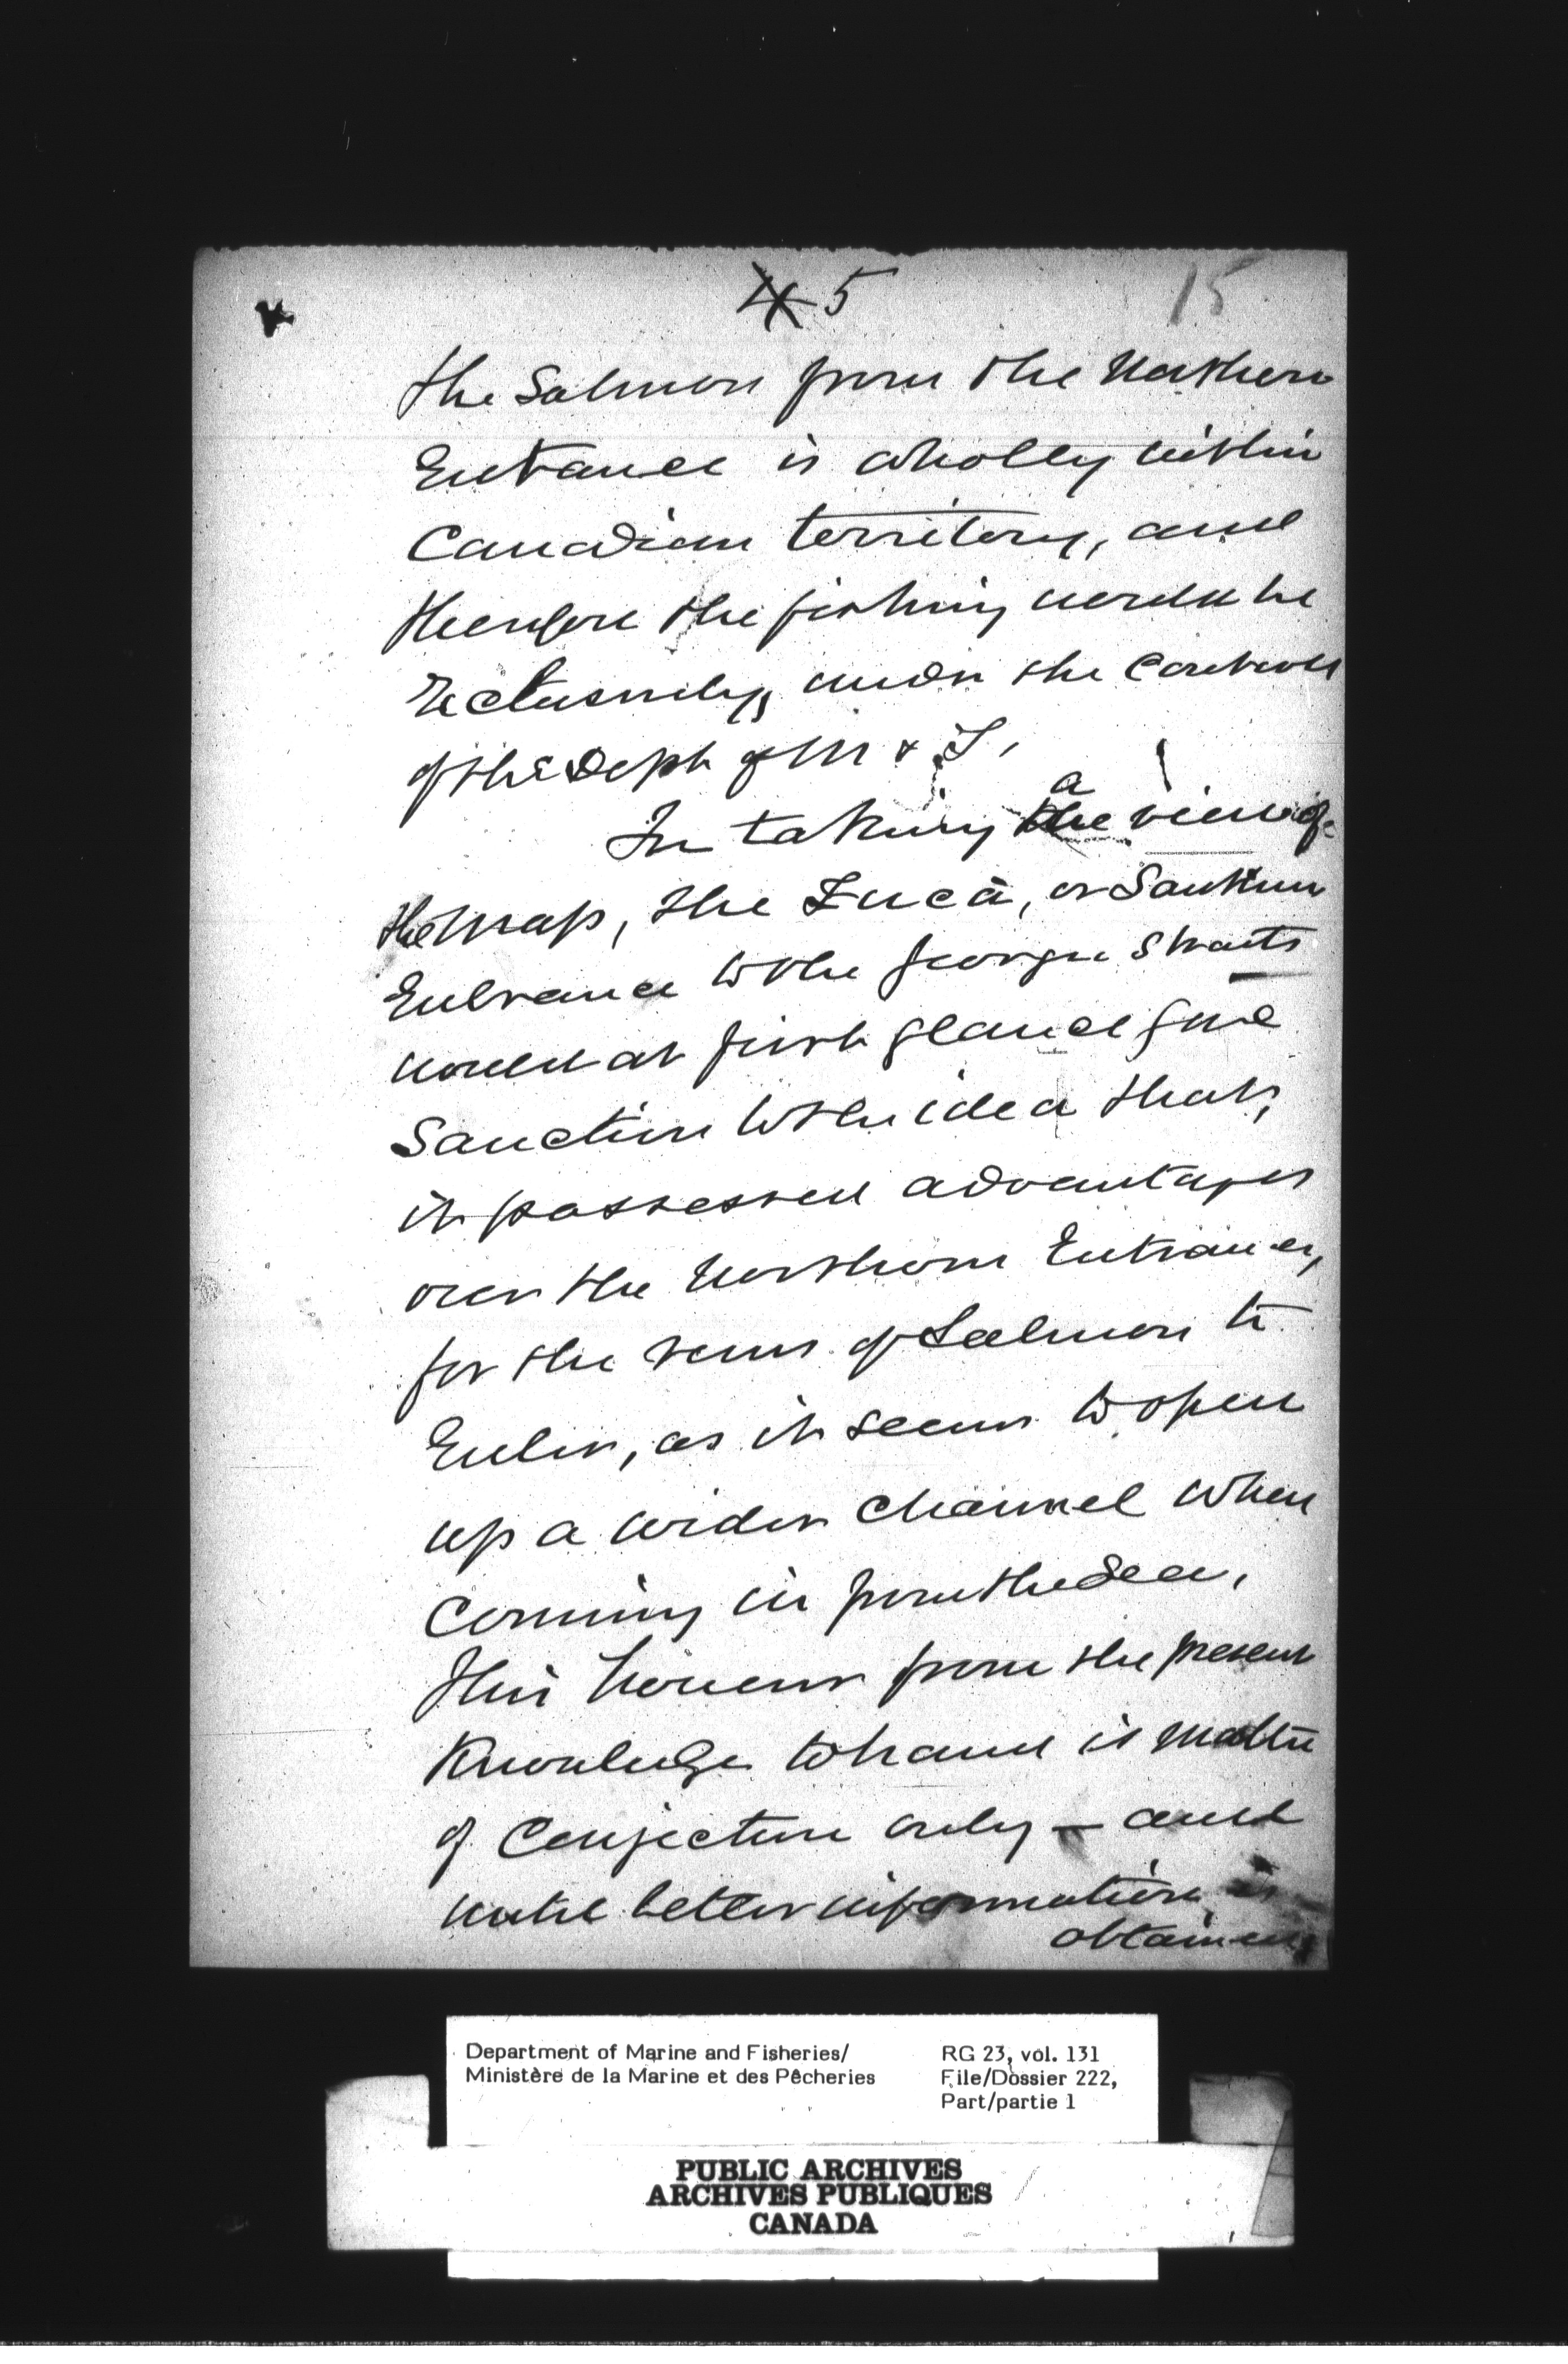 4 5 15
the Salmon from the Northern
Entrance is wholly within
Canadian territory, and
therefore the fishing would be
Exclusively, under the Controll
of the Dept of M & F.
In taking the a view of
the Map, the Fuca, or Southern
Entrance to the Georgia Straits
would at first glance give
Sanction to the idea that,
it possessed advantages
over the Northern Entrance,
for the runs of Salmon to
Enter, as it seems to open
up a wider Channel when
Coming in from the Sea,
this however from the present
Knowledge to hand is matter
of Conjecture only — and
until better information is
obtained,
Department of Marine and Fisheries/
Ministère de la Marine et des Pêcheries
RG 23, vol. 131
File/Dossier 222,
Part/partie 1
PUBLIC ARCHIVES
ARCHIVES PUBLIQUES
CANADA